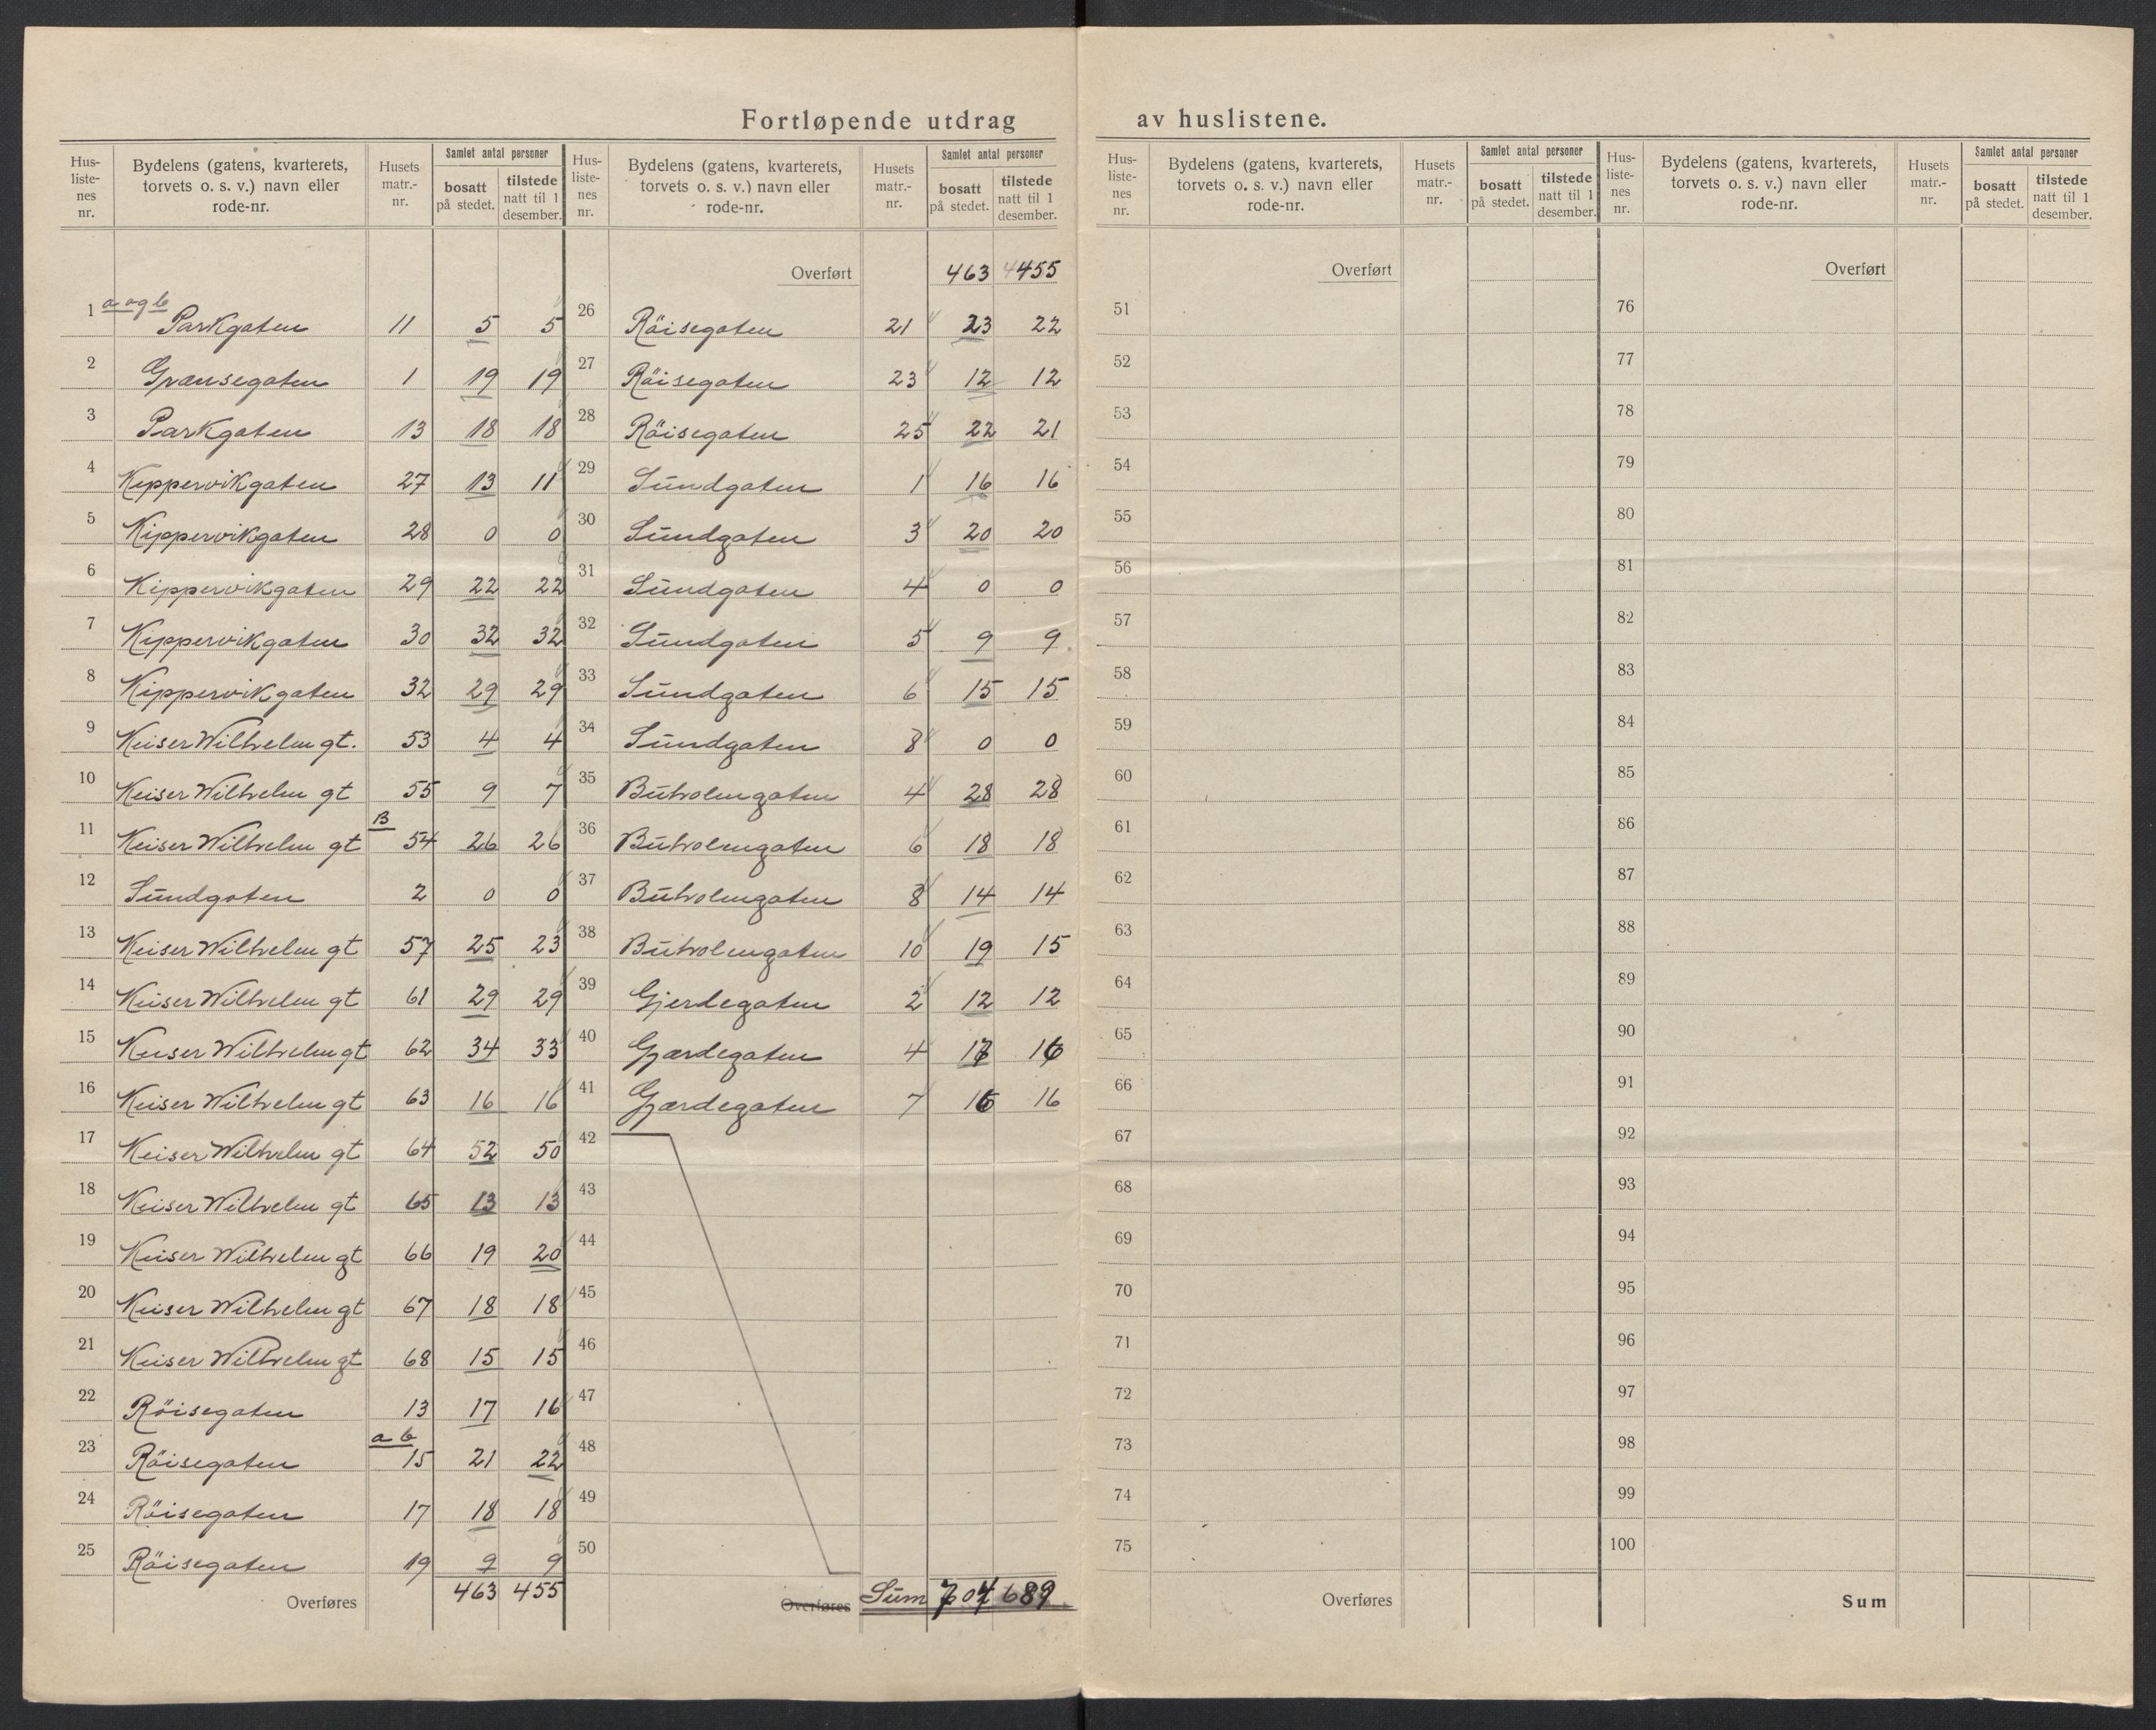 Fortløpende utdrag av huslistene.
Hus-liste-nes nr. | Bydelens (gatens, kvarterets, torvets o. s. v.) navn eller rode-nr. | Husets matr.-nr. | Samlet antal personer bosatt på stedet. | tilstede natt til 1 desember.
1 a og b Parkgaten 11 5 5
2 Grænsegaten 1 19 19
3 Parkgaten 13 18 18
4 Kippervikgaten 27 13 11
5 Kippervikgaten 28 0 0
6 Kippervikgaten 29 22 22
7 Kippervikgaten 30 32 32
8 Kippervikgaten 32 29 29
9 Keiser Wilhelm gt. 53 4 4
10 Keiser Wilhelm gt 55 9 7
11 Keiser Wilhelm gt B 54 26 26
12 Sundgaten 2 0 0
13 Keiser Wilhelm gt 57 25 23
14 Keiser Wilhelm gt 61 29 29
15 Keiser Wilhelm gt 62 34 33
16 Keiser Wilhelm gt 63 16 16
17 Keiser Wilhelm gt 64 52 50
18 Keiser Wilhelm gt 65 13 13
19 Keiser Wilhelm gt 66 19 20
20 Keiser Wilhelm gt 67 18 18
21 Keiser Wilhelm gt 68 15 15
22 Röisegaten 13 17 16
23 Röisegaten a b 15 21 22
24 Röisegaten 17 18 18
25 Röisegaten 19 9 9
Overføres 463 455
Hus-liste-nes nr. | Bydelens (gatens, kvarterets, torvets o. s. v.) navn eller rode-nr. | Husets matr.-nr. | Samlet antal personer bosatt på stedet. | tilstede natt til 1 desember.
Overført 463 455
26 Röisegaten 21 23 22
27 Röisegaten 23 12 12
28 Röisegaten 25 22 21
29 Sundgaten 1 16 16
30 Sundgaten 3 20 20
31 Sundgaten 4 0 0
32 Sundgaten 5 9 9
33 Sundgaten 6 15 15
34 Sundgaten 8 0 0
35 Buholmgaten 4 28 28
36 Buholmgaten 6 18 18
37 Buholmgaten 8 14 14
38 Buholmgaten 10 19 15
39 Gjerdegaten 2 12 12
40 Gjærdegaten 4 17 16
41 Gjærdegaten 7 16 16
42
43
44
45
46
47
48
49
50
Overføres Sum 704 689
Hus-liste-nes nr. | Bydelens (gatens, kvarterets, torvets o. s. v.) navn eller rode-nr. | Husets matr.-nr. | Samlet antal personer bosatt på stedet. | tilstede natt til 1 desember.
Overført
51
52
53
54
55
56
57
58
59
60
61
62
63
64
65
66
67
68
69
70
71
72
73
74
75
Overføres
Hus-liste-nes nr. | Bydelens (gatens, kvarterets, torvets o. s. v.) navn eller rode-nr. | Husets matr.-nr. | Samlet antal personer bosatt på stedet. | tilstede natt til 1 desember.
Overført
76
77
78
79
80
81
82
83
84
85
86
87
88
89
90
91
92
93
94
95
96
97
98
99
100
Sum